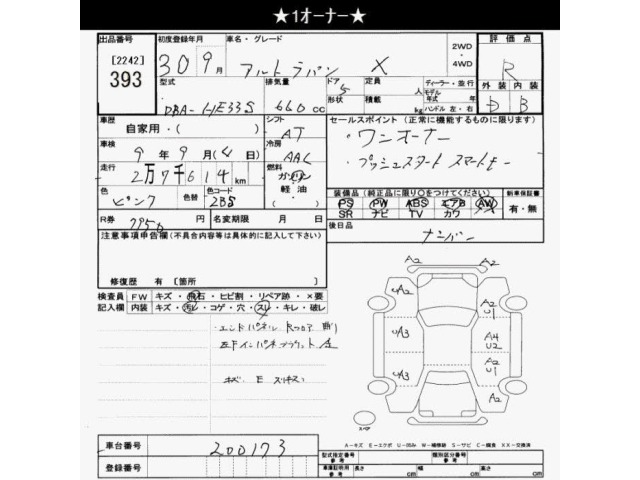 ★1オーナー★
出品番号 初度登録年月 車名・グレード 2WD・4WD 評価点
[2242] 393 30年 9月 アルトラパン X R
型式 排気量 ドア 定員 ディーラー・並行 外装 内装
DBA-HE33S 660cc 5 人 モデル年式 年
形状 積載 kg ハンドル 左・右 D B
車歴 自家用・( ) シフト AT セールスポイント (正常に機能するものに限ります)
車検 9年 9月(4日) 冷房 AAC ・ワンオーナー
走行 2万7千614km 燃料 ガソリン・軽油・ ・プッシュスタート スマートキー
色 ピンク 色替 色コード ZBS 装備品 (純正品に限り○をつけてください) 新車保証書
PS PW ABS エアB AW 有・無
SR ナビ TV カワ
R券 7750円 名変期限 月 日 後日品 ナンバー
注意事項申告欄(不具合内容等は具体的に記入して下さい)
修復歴 有 [箇所 ]
検査員記入欄 FW キズ・飛石・ヒビ割・リペア跡・×要
内装 キズ・汚レ・コゲ・穴・スレ・キレ・破レ
・エンドパネル Rフロア
A2 A2
UA2 A2 U1
UA3 A4 U2
A2 U1
UA3 A2
A2
車台番号 200173
登録番号
A-キズ E-エクボ U-凹み W-補修跡 S-サビ C-腐食 XX-交換済
型式指定番号 参考 類別区分番号 参考
車庫証明用 参考 長さ cm 幅 cm 高さ cm